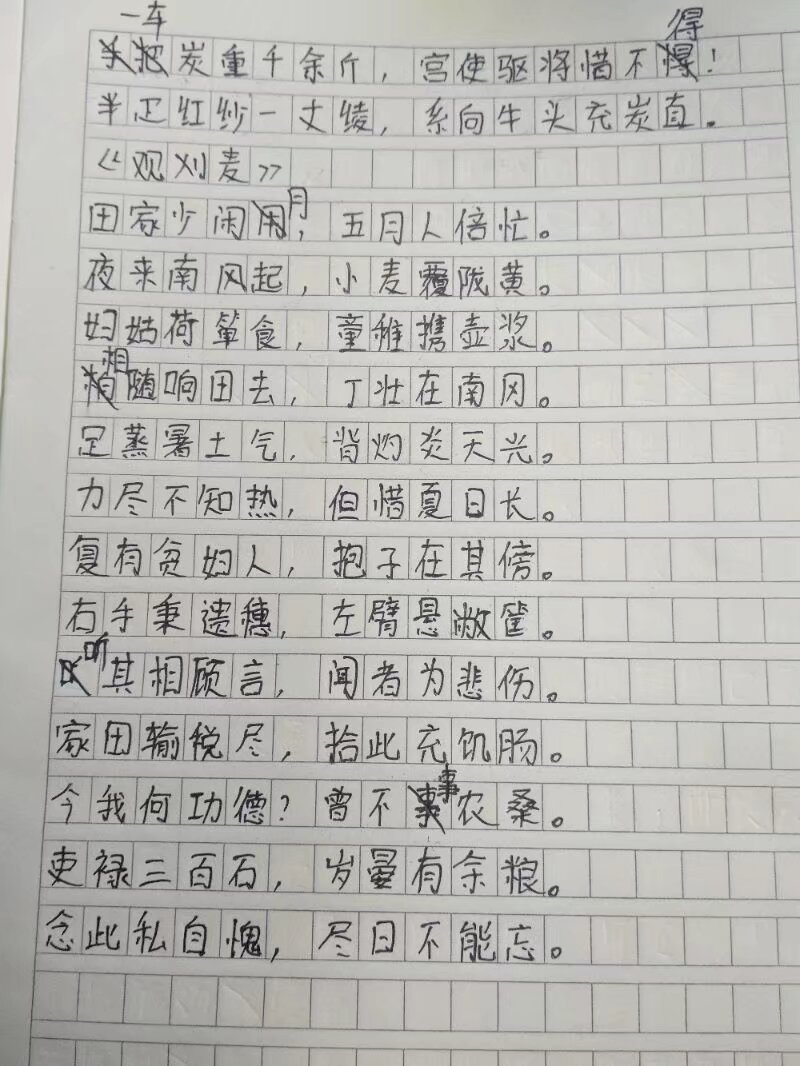 一车炭重千余斤，宫使驱将惜不得！
半疋红纱一丈绫，系向牛头充炭直。
《观刈麦》
田家少闲月，五月人倍忙。
夜来南风起，小麦覆陇黄。
妇姑荷箪食，童稚携壶浆。
相随响田去，丁壮在南冈。
足蒸暑土气，背灼炎天光。
力尽不知热，但惜夏日长。
复有贫妇人，抱子在其傍。
右手秉遗穗，左臂悬敝筐。
听其相顾言，闻者为悲伤。
家田输税尽，拾此充饥肠。
今我何功德？曾不事农桑。
吏禄三百石，岁晏有余粮。
念此私自愧，尽日不能忘。